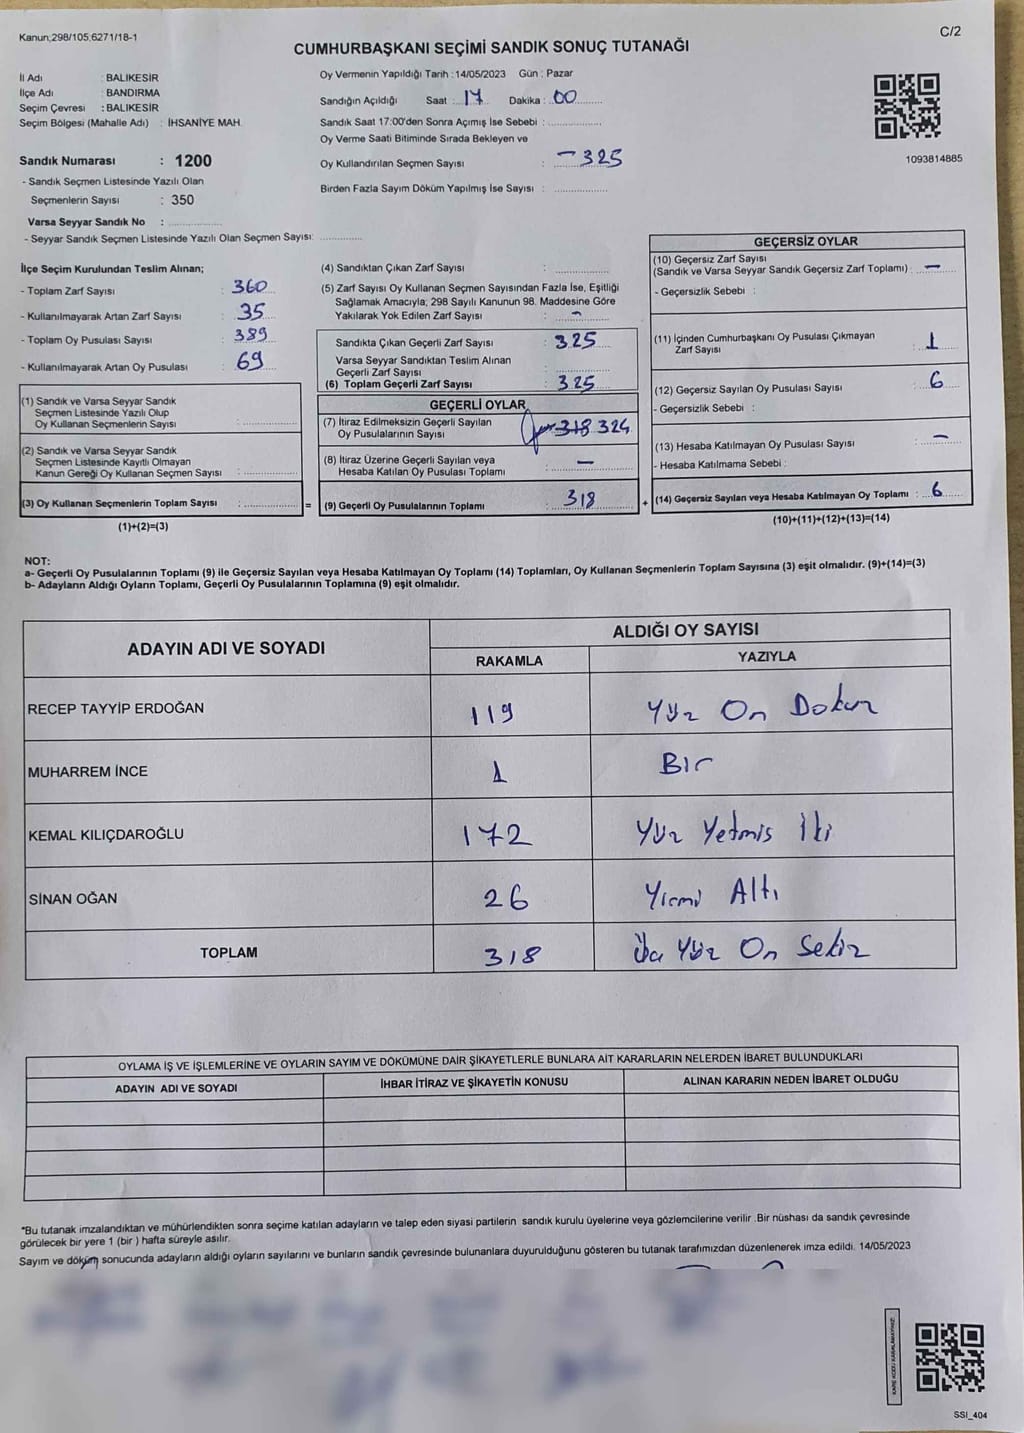 Kanun;298/105,6271/18-1
C/2
CUMHURBAŞKANI SEÇİMİ SANDIK SONUÇ TUTANAĞI
İl Adı : BALIKESİR
İlçe Adı : BANDIRMA
Seçim Çevresi : BALIKESİR
Seçim Bölgesi (Mahalle Adı) : İHSANİYE MAH.
Sandık Numarası : 1200
- Sandık Seçmen Listesinde Yazılı Olan
Seçmenlerin Sayısı : 350
Varsa Seyyar Sandık No : ..............
- Seyyar Sandık Seçmen Listesinde Yazılı Olan Seçmen Sayısı: ..............
Oy Vermenin Yapıldığı Tarih : 14/05/2023 Gün : Pazar
Sandığın Açıldığı Saat : 17 Dakika : 00
Sandık Saat 17:00'den Sonra Açımış İse Sebebi : ..............
Oy Verme Saati Bitiminde Sırada Bekleyen ve
Oy Kullandırılan Seçmen Sayısı : - 325
Birden Fazla Sayım Döküm Yapılmış İse Sayısı : ..............
1093814885
İlçe Seçim Kurulundan Teslim Alınan;
- Toplam Zarf Sayısı : 360
- Kullanılmayarak Artan Zarf Sayısı : 35
- Toplam Oy Pusulası Sayısı : 389
- Kullanılmayarak Artan Oy Pusulası : 69
(1) Sandık ve Varsa Seyyar Sandık
Seçmen Listesinde Yazılı Olup
Oy Kullanan Seçmenlerin Sayısı : ..............
(2) Sandık ve Varsa Seyyar Sandık
Seçmen Listesinde Kayıtlı Olmayan
Kanun Gereği Oy Kullanan Seçmen Sayısı : ..............
(3) Oy Kullanan Seçmenlerin Toplam Sayısı : .............. =
(1)+(2)=(3)
(4) Sandıktan Çıkan Zarf Sayısı : ..............
(5) Zarf Sayısı Oy Kullanan Seçmen Sayısından Fazla İse, Eşitliği
Sağlamak Amacıyla; 298 Sayılı Kanunun 98. Maddesine Göre
Yakılarak Yok Edilen Zarf Sayısı : -
Sandıkta Çıkan Geçerli Zarf Sayısı : 325
Varsa Seyyar Sandıktan Teslim Alınan
Geçerli Zarf Sayısı : ..............
(6) Toplam Geçerli Zarf Sayısı : 325
GEÇERLİ OYLAR
(7) İtiraz Edilmeksizin Geçerli Sayılan
Oy Pusulalarının Sayısı : 318 324
(8) İtiraz Üzerine Geçerli Sayılan veya
Hesaba Katılan Oy Pusulası Toplamı : -
(9) Geçerli Oy Pusulalarının Toplamı : 318 +
GEÇERSİZ OYLAR
(10) Geçersiz Zarf Sayısı
(Sandık ve Varsa Seyyar Sandık Geçersiz Zarf Toplamı) : -
- Geçersizlik Sebebi :
(11) İçinden Cumhurbaşkanı Oy Pusulası Çıkmayan
Zarf Sayısı : 1
(12) Geçersiz Sayılan Oy Pusulası Sayısı : 6
- Geçersizlik Sebebi :
(13) Hesaba Katılmayan Oy Pusulası Sayısı : -
- Hesaba Katılmama Sebebi :
(14) Geçersiz Sayılan veya Hesaba Katılmayan Oy Toplamı : 6
(10)+(11)+(12)+(13)=(14)
NOT:
a- Geçerli Oy Pusulalarının Toplamı (9) ile Geçersiz Sayılan veya Hesaba Katılmayan Oy Toplamı (14) Toplamları, Oy Kullanan Seçmenlerin Toplam Sayısına (3) eşit olmalıdır. (9)+(14)=(3)
b- Adayların Aldığı Oyların Toplamı, Geçerli Oy Pusulalarının Toplamına (9) eşit olmalıdır.
ADAYIN ADI VE SOYADI
ALDIĞI OY SAYISI
RAKAMLA YAZIYLA
RECEP TAYYİP ERDOĞAN 119 Yüz On Dokuz
MUHARREM İNCE 1 Bir
KEMAL KILIÇDAROĞLU 172 Yüz Yetmis İki
SİNAN OĞAN 26 Yirmi Altı
TOPLAM 318 Üç Yüz On Sekiz
OYLAMA İŞ VE İŞLEMLERİNE VE OYLARIN SAYIM VE DÖKÜMÜNE DAİR ŞİKAYETLERLE BUNLARA AİT KARARLARIN NELERDEN İBARET BULUNDUKLARI
ADAYIN ADI VE SOYADI İHBAR İTİRAZ VE ŞİKAYETİN KONUSU ALINAN KARARIN NEDEN İBARET OLDUĞU
*Bu tutanak imzalandıktan ve mühürlendikten sonra seçime katılan adayların ve talep eden siyasi partilerin sandık kurulu üyelerine veya gözlemcilerine verilir .Bir nüshası da sandık çevresinde
görülecek bir yere 1 (bir ) hafta süreyle asılır.
Sayım ve döküm sonucunda adayların aldığı oyların sayılarını ve bunların sandık çevresinde bulunanlara duyurulduğunu gösteren bu tutanak tarafımızdan düzenlenerek imza edildi. 14/05/2023
KARE KODU KARALAMAYINIZ!
SSI_404